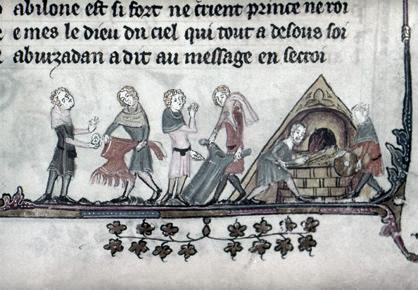 abilone est si fort ne crient prince ne roi
e mes le dieu du ciel qui tout a desous soi
abuizadan a dit au message en secroi